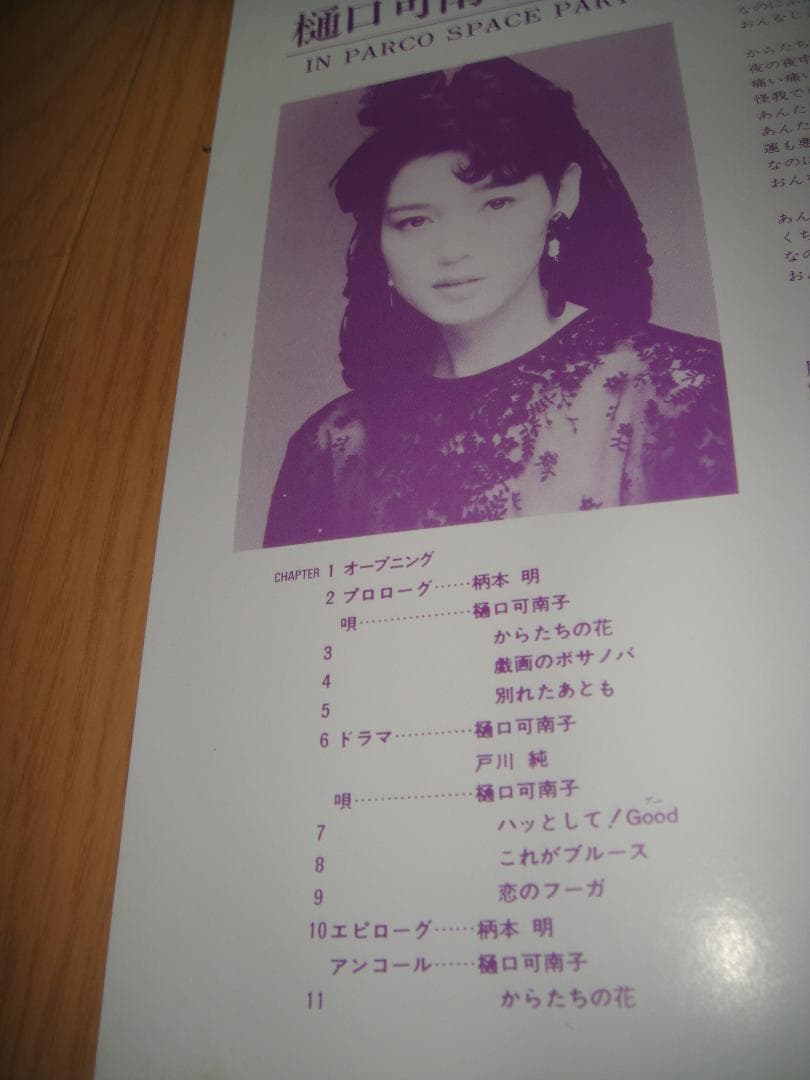 樋口可南
IN PARCO SPACE PART
CHAPTER 1 オープニング
2 プロローグ……柄本 明
唄………………樋口可南子
3 からたちの花
4 戯画のボサノバ
5 別れたあとも
6 ドラマ…………樋口可南子
戸川 純
唄………………樋口可南子
グー
7 ハッとして!Good
8 これがブルース
9 恋のフーガ
10 エピローグ……柄本 明
アンコール……樋口可南子
11 からたちの花
おんなじ
からたち
夜の夜中
痛い痛い
怪我で
あんた
あんた
運も悪
なのに
おん
あん
くち
なの